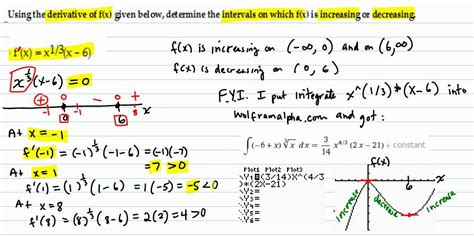 Using the derivative of f(x) given below, determine the intervals on which f(x) is increasing or decreasing.
f'(x) = x^1/3(x – 6)
x^1/3(x-6) = 0
+ - +
-1 0 1 6 8 x
At x = -1
f'(-1) = (-1)^1/3(-1-6) = (-1)(-7)
= 7 > 0
At x = 1
f'(1) = (1)^1/3(1-6) = 1(-5) = -5 < 0
At x = 8
f'(8) = (8)^1/3(8-6) = 2(2) = 4 > 0
f(x) is increasing on (-∞, 0) and on (6, ∞)
f(x) is decreasing on (0, 6)
F.Y.I. I put integrate x^(1/3)*(x-6) into
Wolframalpha.com and got:
∫(-6+x) ∛x dx = 3/14 x^4/3 (2x-21) + constant
Plot1 Plot2 Plot3
\Y1=(3/14)X^(4/3
)*(2X-21)
\Y2=
\Y3=
\Y4=
\Y5=
\Y6=
f(x)
x
6
increase
decrease
increase